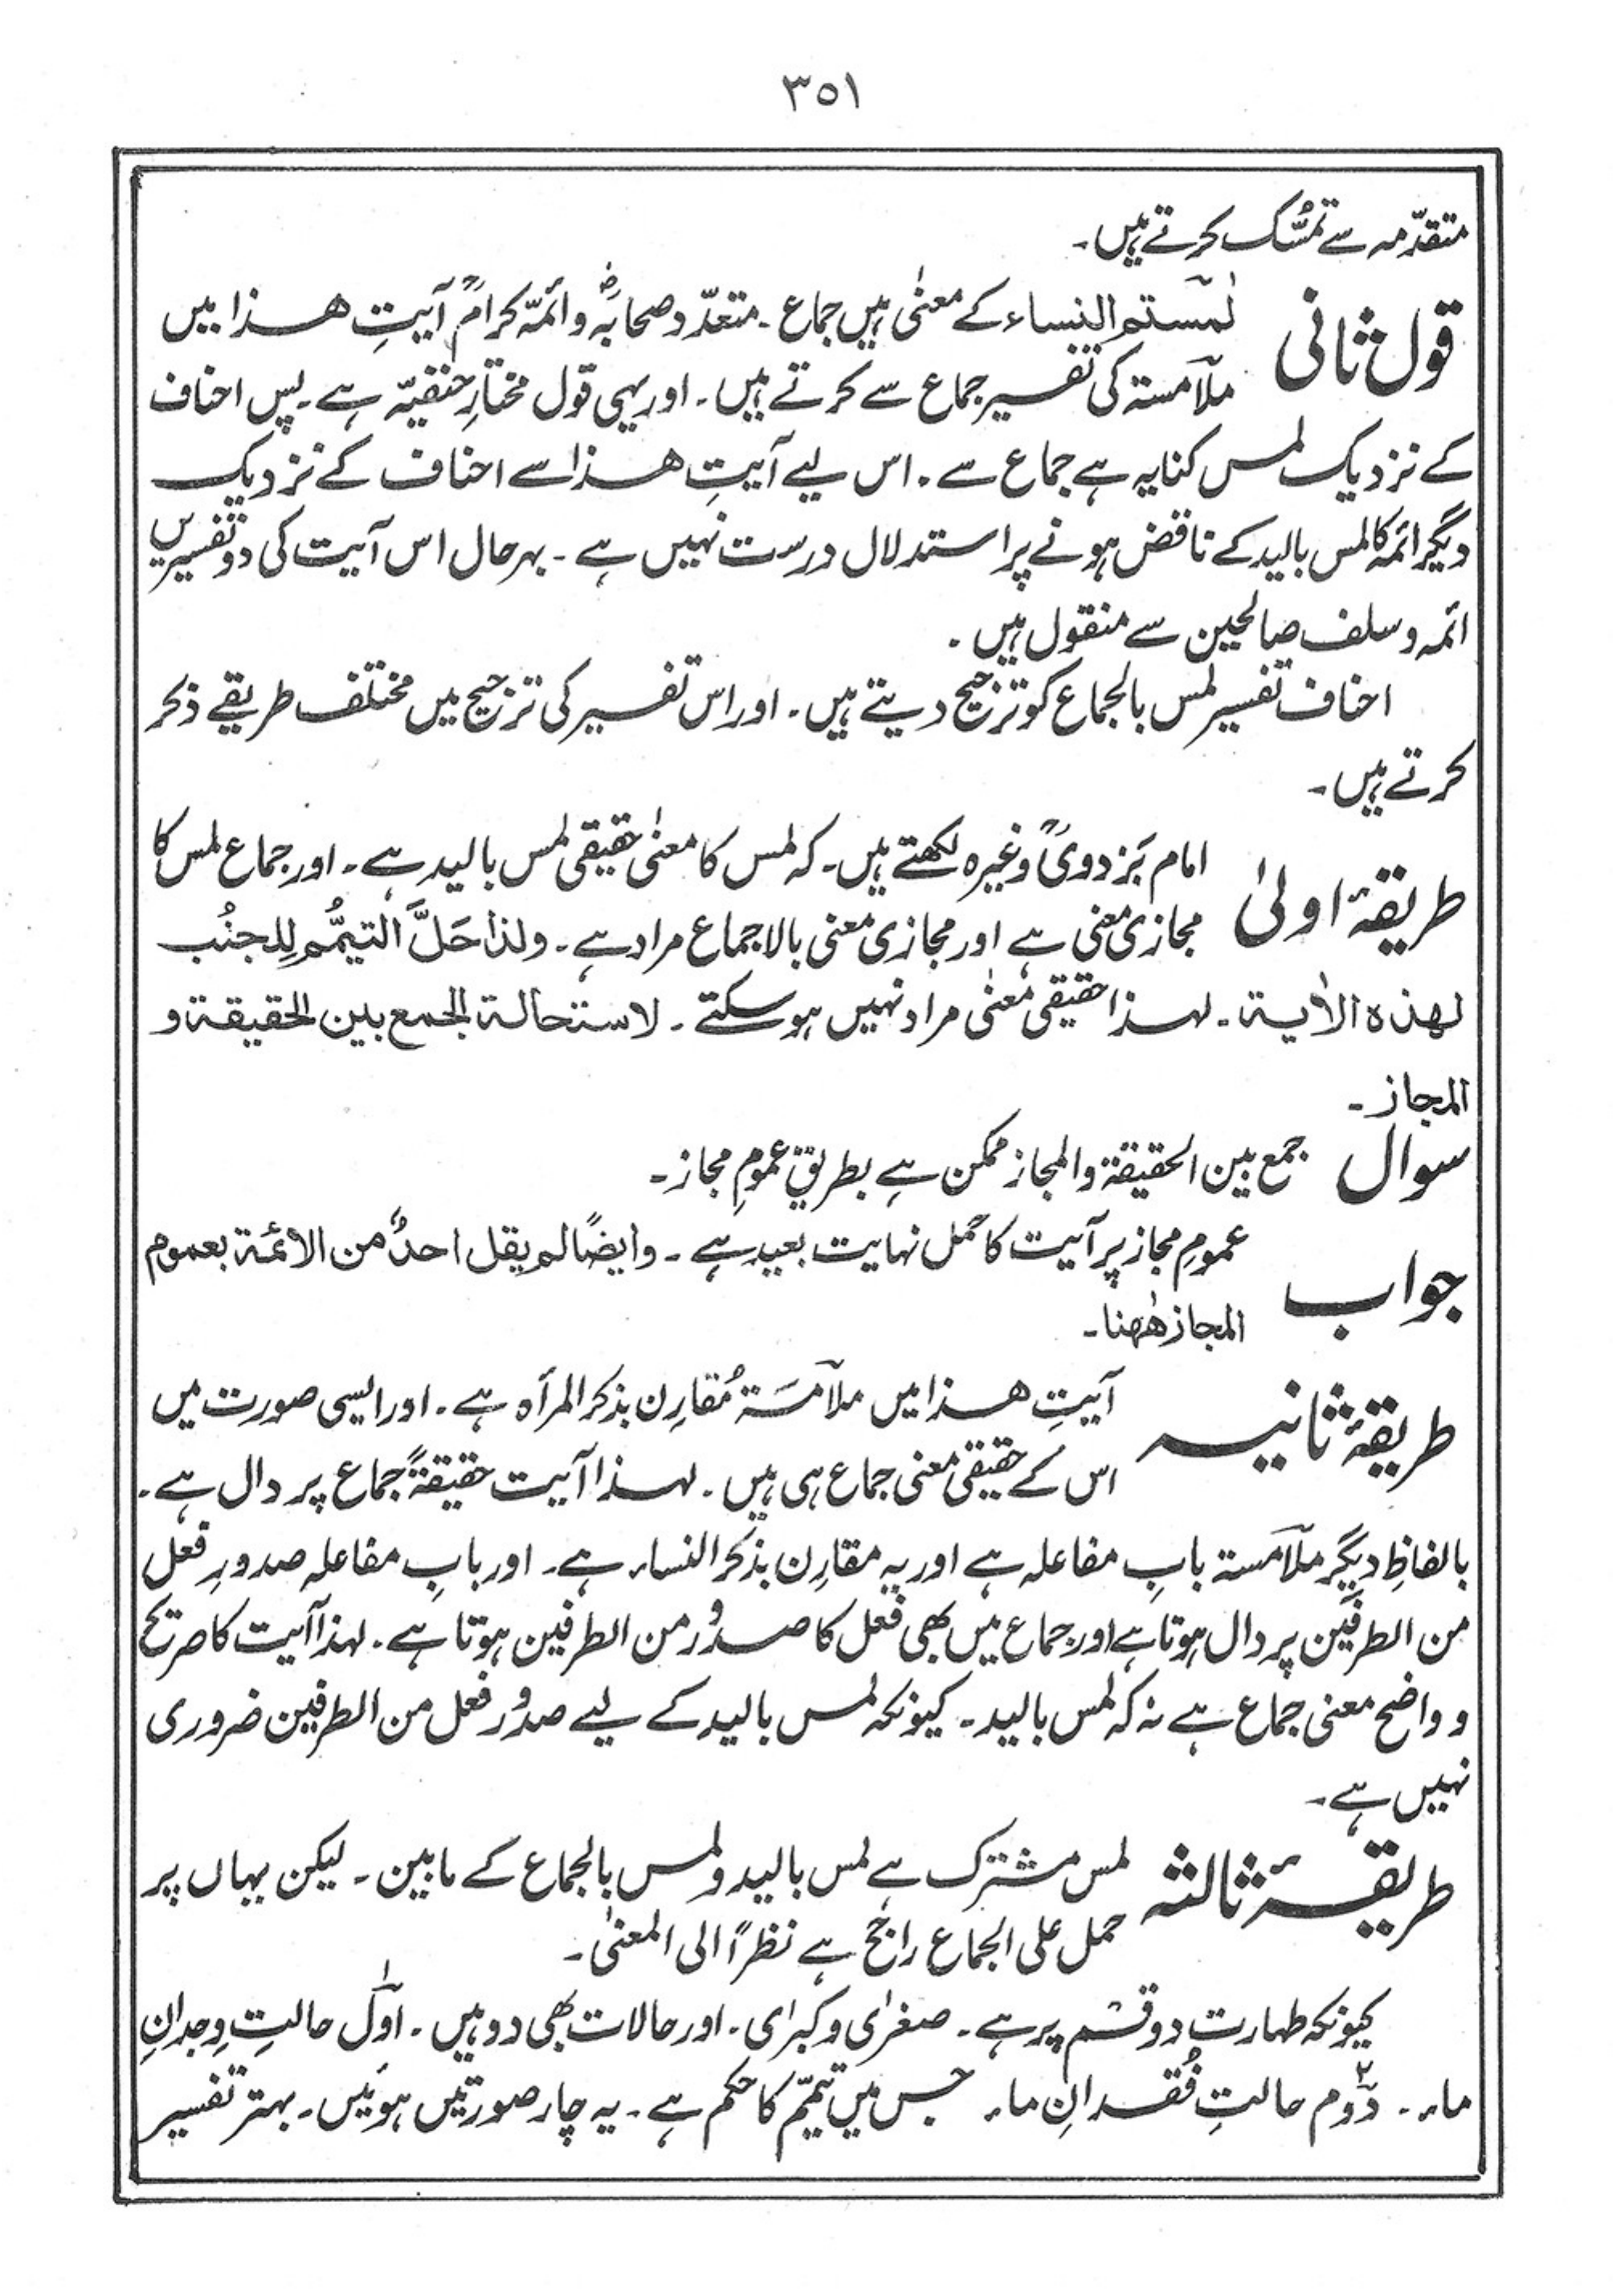 ٣٥١
متقدّمہ سے تمسُّک کرتے ہیں۔
قول ثانی لٰمَستم النساء کے معنٰی ہیں جماع ۔ متعدّد صحابہؓ وائمّہ کرامؒ آیتِ ھذا میں
ملآمستہ کی تفسیر جماع سے کرتے ہیں ۔ اور یہی قول مختارِ حنفیّہ ہے ۔ پس احناف
کے نزدیک لمس کنایہ ہے جماع سے ۔ اس لیے آیتِ ھذا سے احناف کے نزدیک
دیگر ائمہ کا لمس بالید کے ناقض ہونے پر استدلال درست نہیں ہے ۔ بہرحال اس آیت کی دو تفسیریں
ائمہ و سلف صالحین سے منقول ہیں ۔
احناف تفسیر لمس بالجماع کو ترجیح دیتے ہیں ۔ اور اس تفسیر کی ترجیح میں مختلف طریقے ذکر
کرتے ہیں ۔
طریقۂ اولیٰ امام بَزدویؒ وغیرہ لکھتے ہیں ۔ کہ لمس کا معنٰی حقیقی لمس بالید ہے ۔ اور جماع لمس کا
مجازی معنی ہے اور مجازی معنی بالاجماع مراد ہے ۔ ولذا حَلَّ التیمُّم لِلجنُب
لھذہ الاٰیۃ ۔ لہذا حقیقی معنٰی مراد نہیں ہو سکتے ۔ لاستحالۃ الجمع بین الحقیقۃ و
المجاز ۔
سوال جمع بین الحقیقۃ والمجاز ممکن ہے بطریقِ عمومِ مجاز ۔
جواب عمومِ مجاز پر آیت کا حمل نہایت بعید ہے ۔ وایضًا لم یقل احدٌ من الائمۃ بعموم
المجاز ھٰھنا ۔
طریقۂ ثانیہ آیتِ ھذا میں ملآمَسَۃ مُقارِن بذکر المرأہ ہے ۔ اور ایسی صورت میں
اس کے حقیقی معنی جماع ہی ہیں ۔ لہذا آیت حقیقۃً جماع پر دال ہے ۔
بالفاظِ دیگر ملآمَستہ بابِ مفاعلہ ہے اور یہ مقارِن بذکر النساء ہے ۔ اور بابِ مفاعلہ صدورِ فعل
من الطرفَین پر دال ہوتا ہے اور جماع میں بھی فعل کا صدُور من الطرفین ہوتا ہے ۔ لہذا آیت کا صریح
و واضح معنی جماع ہے نہ کہ لمس بالید ۔ کیونکہ لمس بالید کے لیے صدُور فعل من الطرفین ضروری
نہیں ہے ۔
طریقۂ ثالثہ لمس مشترک ہے لمس بالید و لمس بالجماع کے مابین ۔ لیکن یہاں پر
حمل علی الجماع راجح ہے نظرًا الی المعنٰی ۔
کیونکہ طہارت دو قسم پر ہے ۔ صغرٰی و کبرٰی ۔ اور حالات بھی دو ہیں ۔ اوّل حالتِ وِجدانِ
ماء ۔ دّوم حالتِ فُقدانِ ماء جس میں تیمّم کا حکم ہے ۔ یہ چار صورتیں ہوئیں ۔ بہتر تفسیر